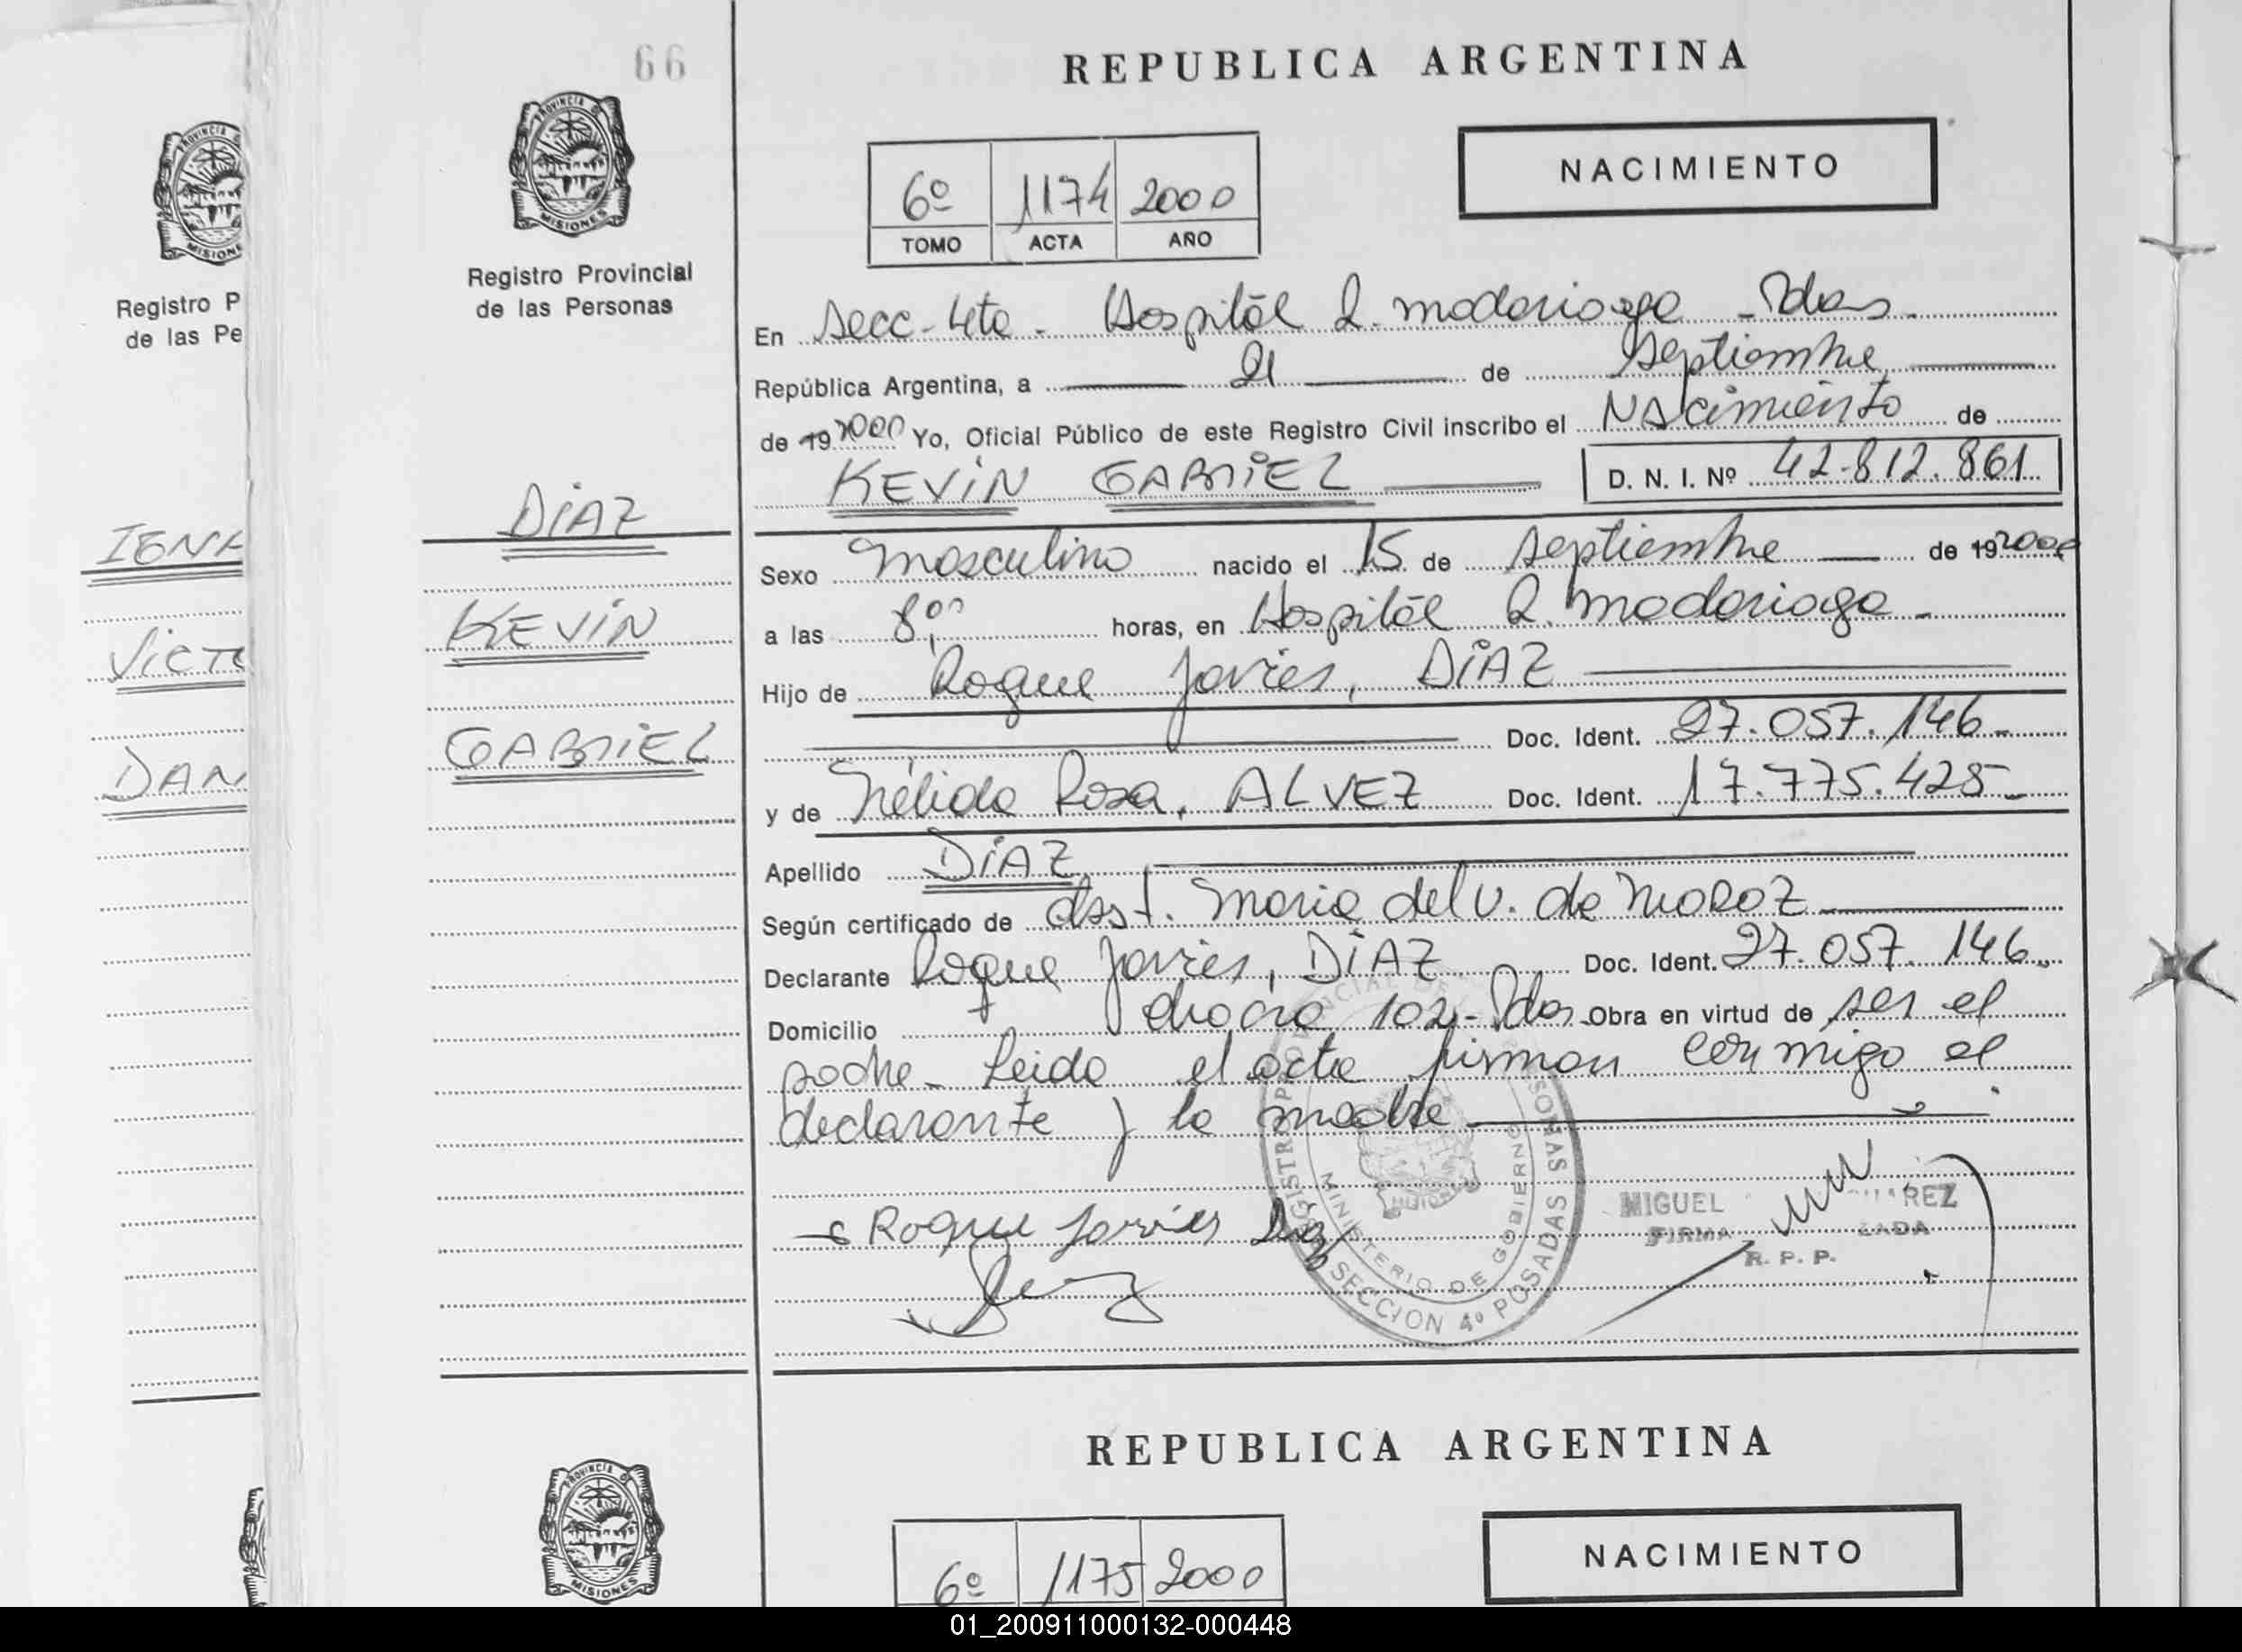 66
PROVINCIA D
MISIONES
Registro P
de las Pe
IGNA
VICTO
DAN
PROVINCIA D
MISIONES
Registro Provincial
de las Personas
DiAZ
KEViN
GABRiEL
REPUBLICA ARGENTINA
6º 1174 2000
TOMO ACTA AÑO
NACIMIENTO
En Secc. 4ta. Hospital R. Madariaga - Pdas.
República Argentina, a 21 de Septiembre
de 19 2000 Yo, Oficial Público de este Registro Civil inscribo el Nacimiento de
KEViN GABRiEL D. N. I. Nº 42.812.861
Sexo Masculino nacido el 15 de Septiembre de 19 2000
a las 8,00 horas, en Hospital R. Madariaga.
Hijo de Roque Javier, DiAZ
Doc. Ident. 27.057.146.
y de Nélida Rosa, ALVEZ Doc. Ident. 17.775.425
Apellido DiAZ
Según certificado de Obst. Maria del V. de MOROZ
Declarante Roque Javier, DiAZ Doc. Ident. 27.057.146.
Domicilio Chacra 102 - Pdas. Obra en virtud de ser el
padre. Leida el acta firman conmigo el
declarante y la madre
REGISTRO PROVINCIAL DE LAS PERSONAS
MINISTERIO DE GOBIERNO
SECCION 4º POSADAS
Roque Javier Diaz
MIGUEL REZ
FIRMA
R. P. P.
PROVINCIA D
MISIONES
REPUBLICA ARGENTINA
6º 1175 2000
NACIMIENTO
01_200911000132-000448